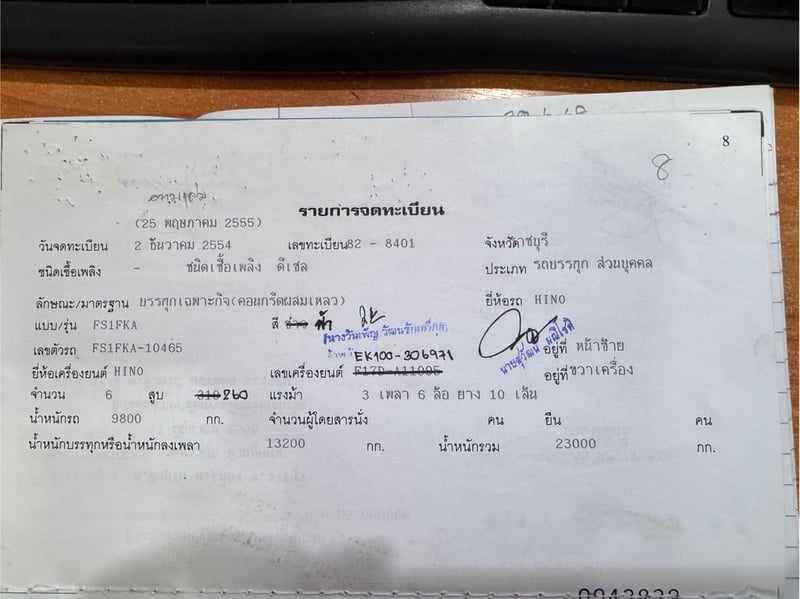 8
8
รายการจดทะเบียน
(25 พฤษภาคม 2555)
วันจดทะเบียน 2 ธันวาคม 2554 เลขทะเบียน 82 - 8401 จังหวัด ราชบุรี
ชนิดเชื้อเพลิง - ชนิดเชื้อเพลิง ดีเซล ประเภท รถบรรทุก ส่วนบุคคล
ลักษณะ/มาตรฐาน บรรทุกเฉพาะกิจ(คอนกรีตผสมเหลว) ยี่ห้อรถ HINO
แบบ/รุ่น FS1FKA สี ขาว ฟ้า
เลขตัวรถ FS1FKA-10465 อยู่ที่ หน้าซ้าย
ยี่ห้อเครื่องยนต์ HINO เลขเครื่องยนต์ EK100-306971 F17D-A11005 อยู่ที่ ขวาเครื่อง
จำนวน 6 สูบ 310 260 แรงม้า 3 เพลา 6 ล้อ ยาง 10 เส้น
น้ำหนักรถ 9800 กก. จำนวนผู้โดยสารนั่ง คน ยืน คน
น้ำหนักบรรทุกหรือน้ำหนักลงเพลา 13200 กก. น้ำหนักรวม 23000 กก.